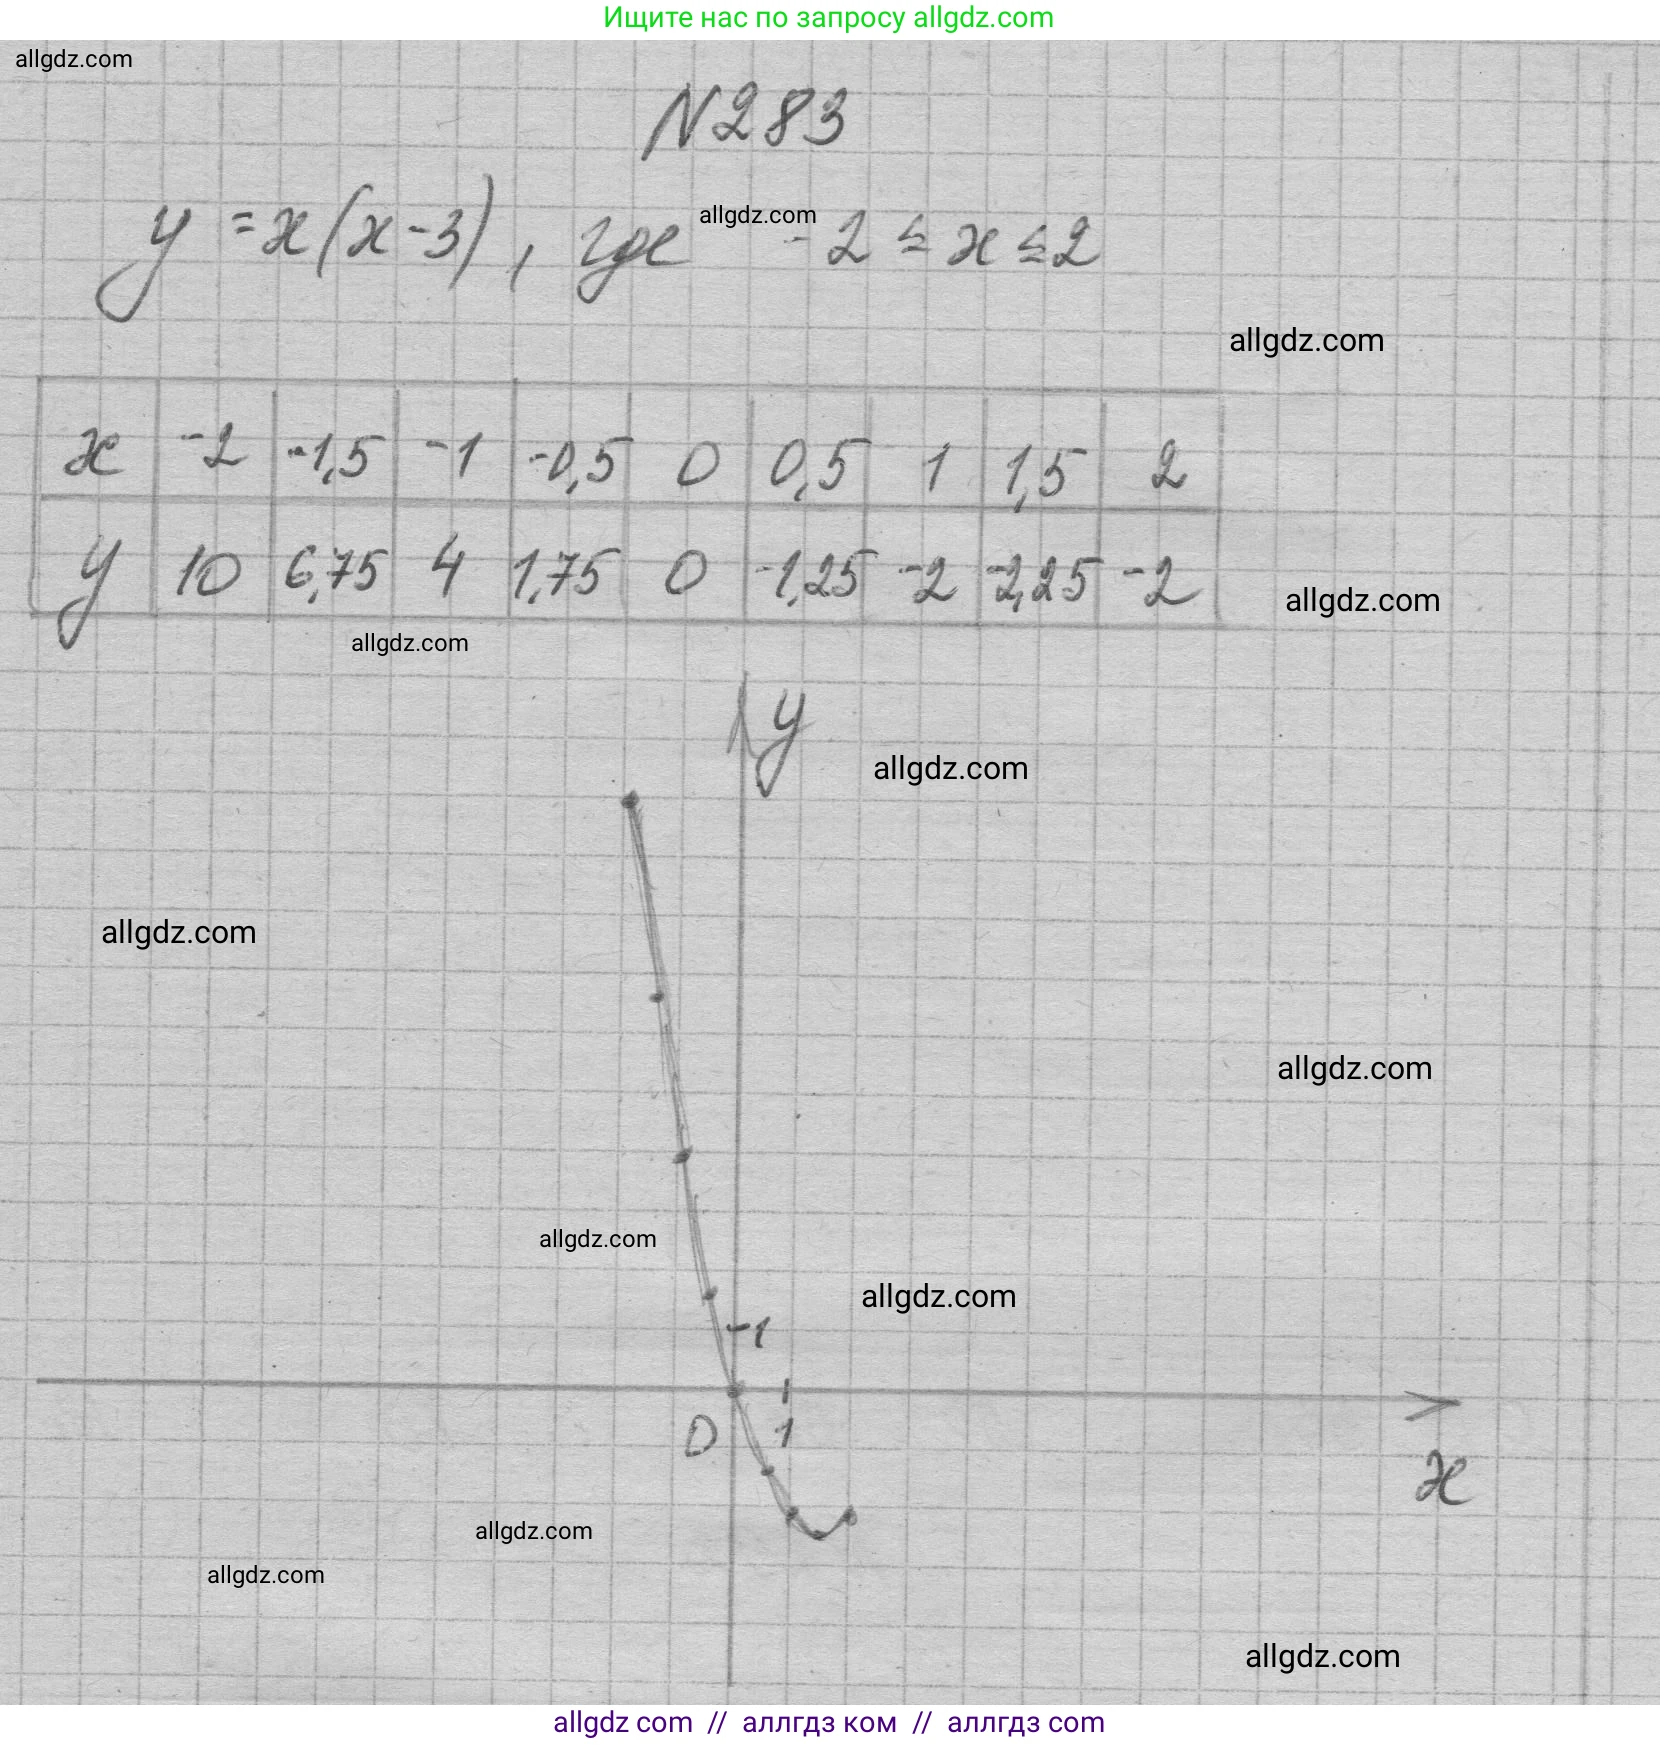 Ищите нас по запросу allgdz.com
allgdz.com
N283
y = x(x-3), где -2 ≤ x ≤ 2
allgdz.com
allgdz.com
x -2 -1,5 -1 -0,5 0 0,5 1 1,5 2
y 10 6,75 4 1,75 0 -1,25 -2 -2,25 -2
allgdz.com
allgdz.com
y
allgdz.com
allgdz.com
allgdz.com
allgdz.com
allgdz.com
1
0 1
x
allgdz.com
allgdz.com
allgdz.com
allgdz com // аллгдз ком // аллгдз com